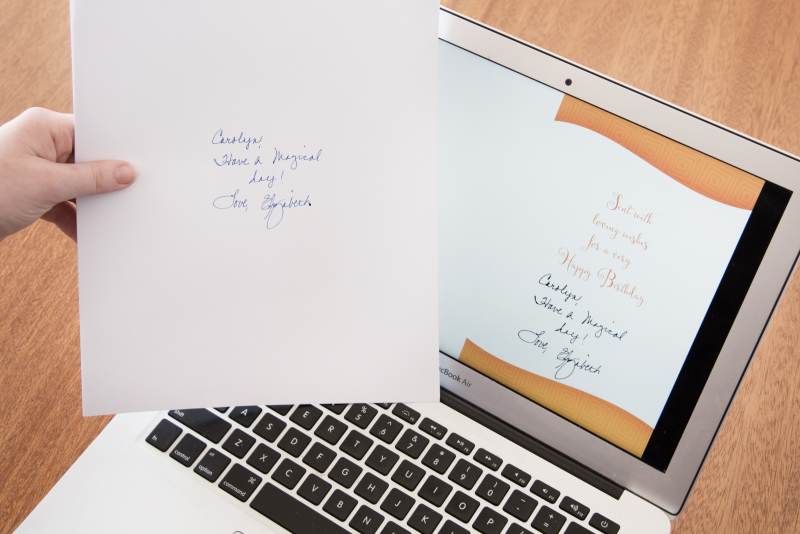 Carolyn,
Have a Magical
day!
Love, Elizabeth
Sent with
loving wishes
for a very
Happy Birthday
Carolyn,
Have a Magical
day!
Love, Elizabeth
MacBook Air
shift A S E R T 5 6 7 8 9 0
fn control option command
Z X D F G Y U I O P
C V B H J K L
N M